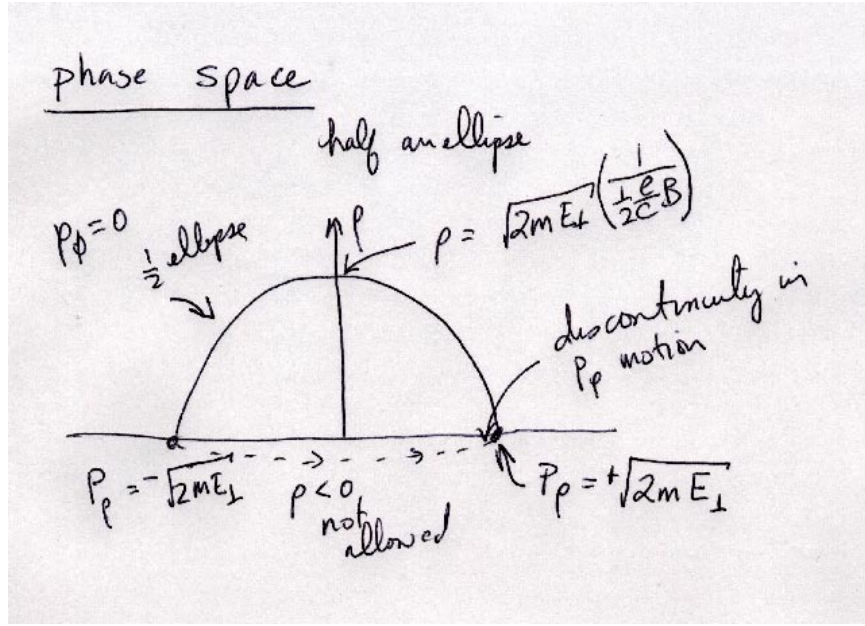 phase space
half an ellipse
P_ϕ = 0
½ ellipse
ρ
ρ = √(2mE⊥) (1 / (½ e/c B))
discontinuity in
P_ρ motion
P_ρ = -√(2mE⊥)
ρ < 0
not
allowed
P_ρ = +√(2mE⊥)